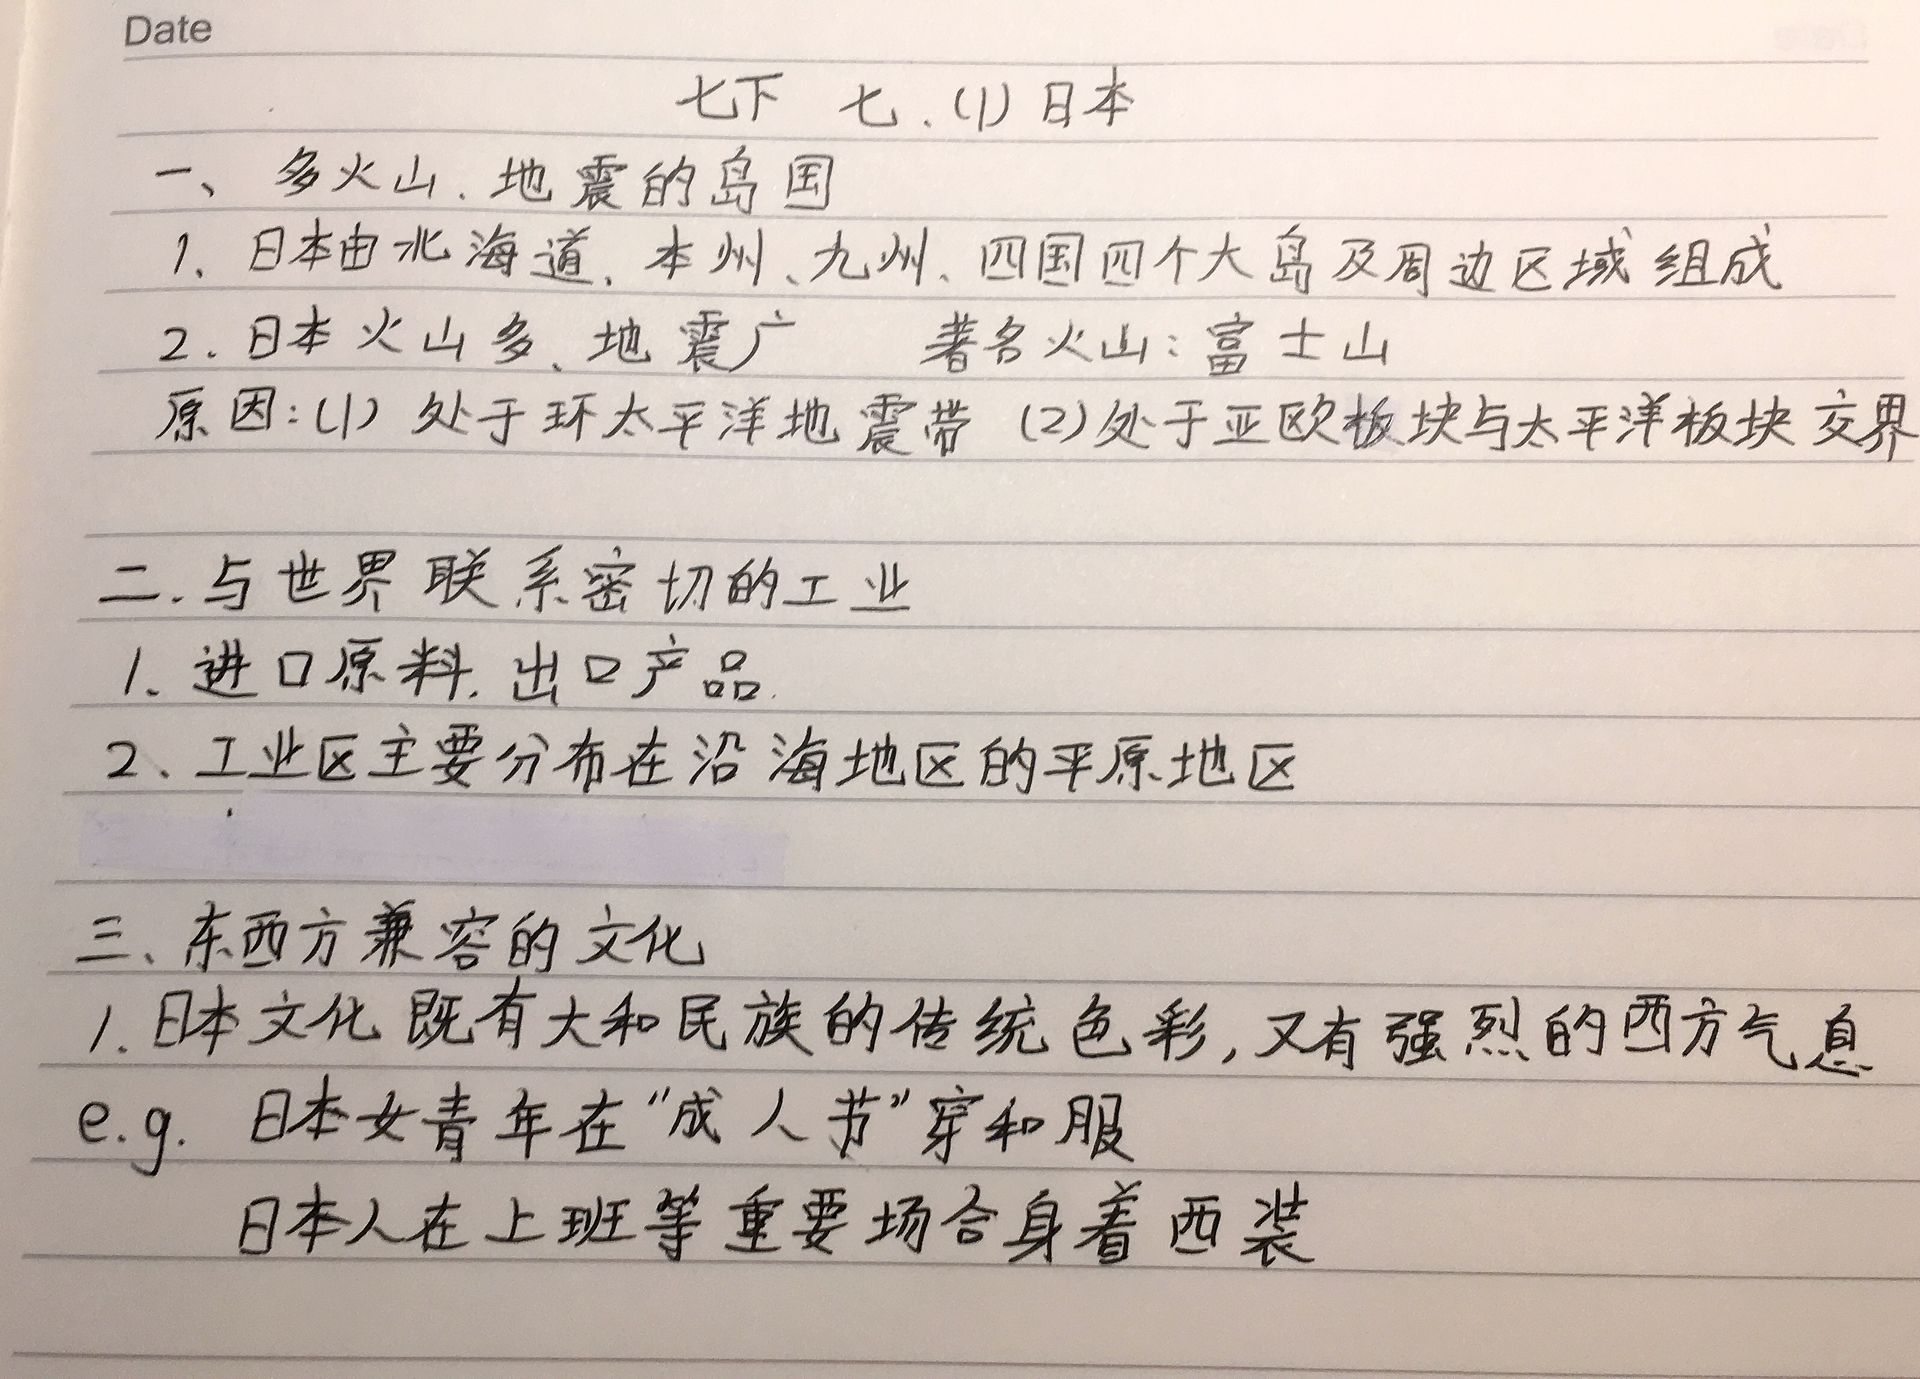 Date
七下 七.(1)日本
一、多火山、地震的岛国
1、日本由北海道、本州、九州、四国四个大岛及周边区域组成
2.日本火山多、地震广 著名火山:富士山
原因:(1)处于环太平洋地震带 (2)处于亚欧板块与太平洋板块交界
二.与世界联系密切的工业
1.进口原料.出口产品.
2、工业区主要分布在沿海地区的平原地区
三、东西方兼容的文化
1.日本文化既有大和民族的传统色彩,又有强烈的西方气息
e.g. 日本女青年在"成人节"穿和服
日本人在上班等重要场合身着西装